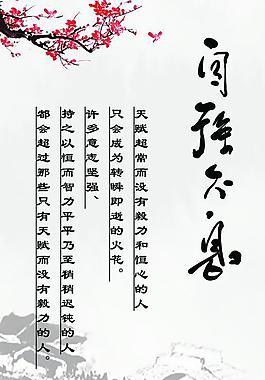 自強不息
天赋超常而没有毅力和恒心的人
只会成为转瞬即逝的火花。
许多意志坚强、
持之以恒而智力平平乃至稍稍迟钝的人
都会超过那些只有天赋而没有毅力的人。